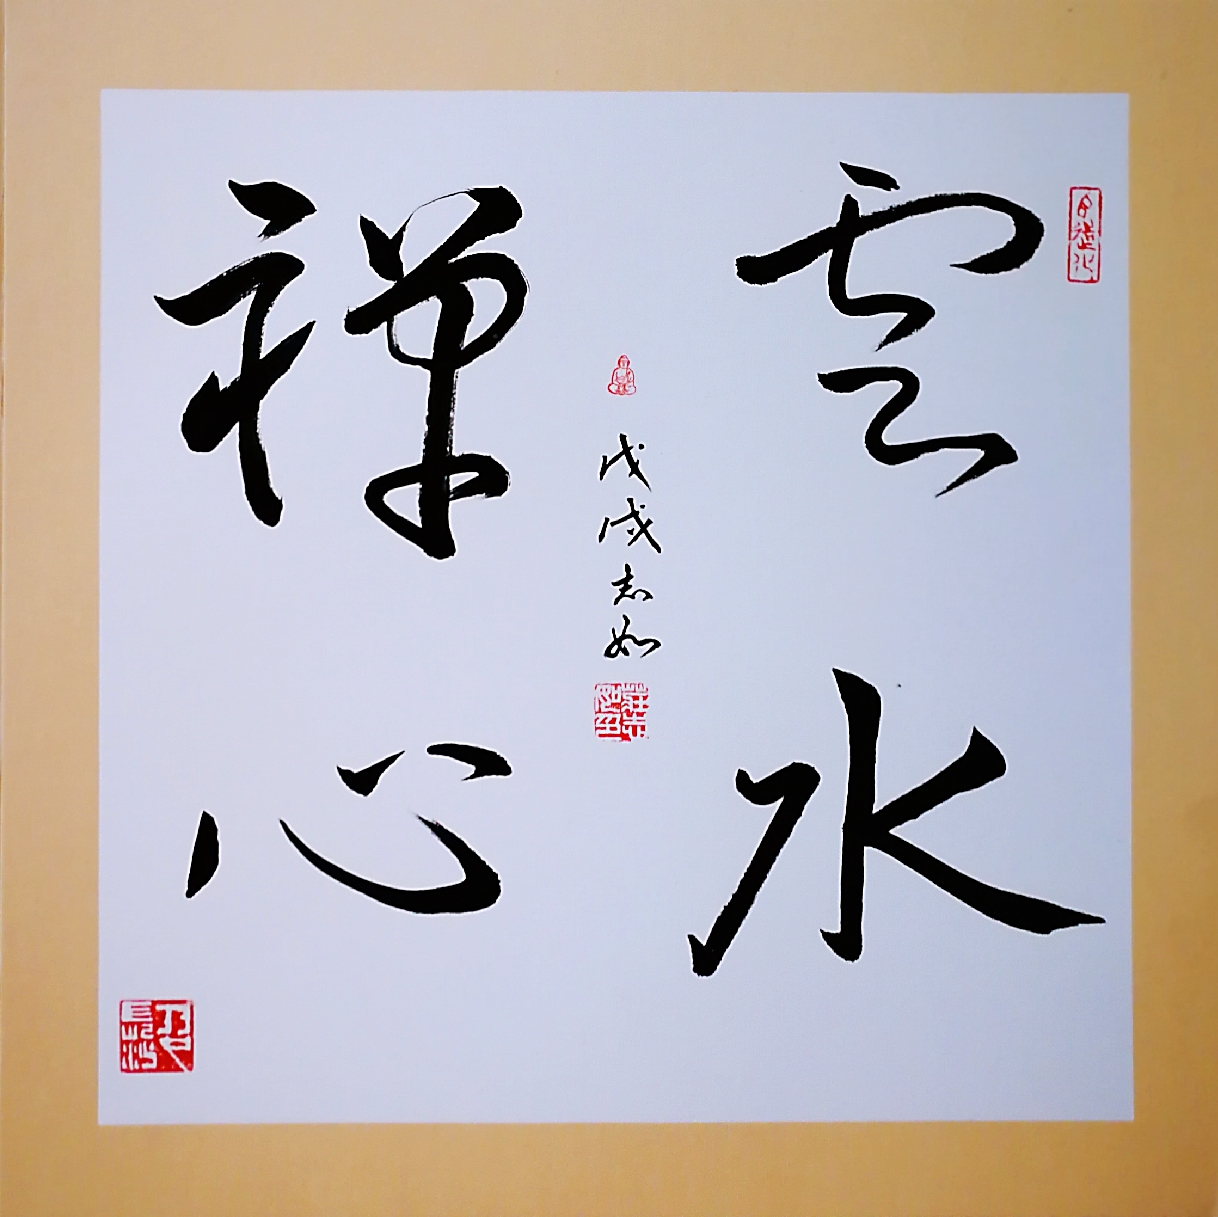 雲水
禪心
戊戌志如